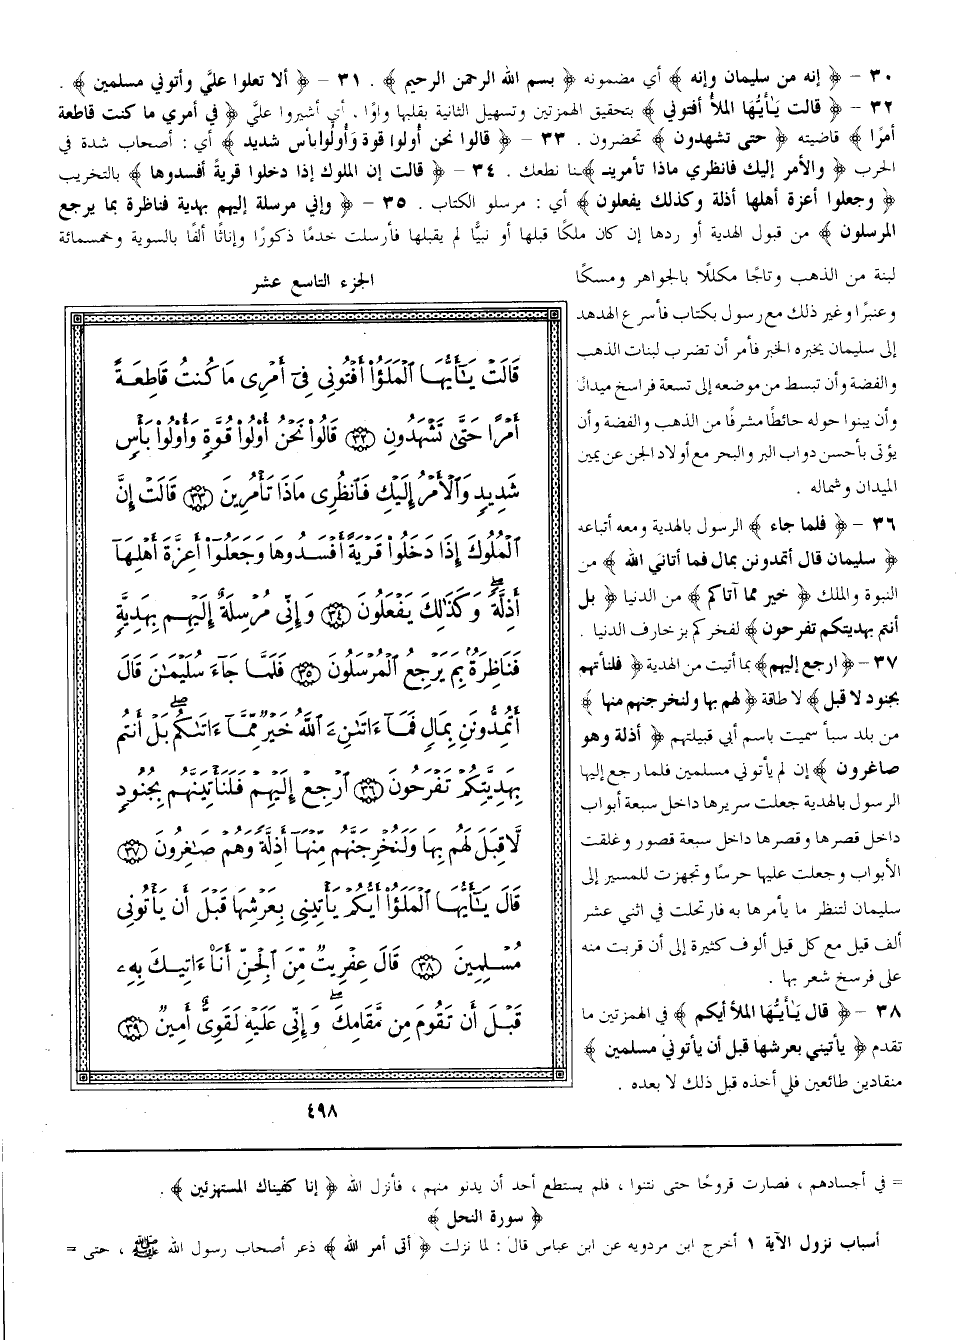 ٣٠ - ﴿ إنه من سليمان وإنه ﴾ أي مضمونه ﴿ بسم الله الرحمن الرحيم ﴾ . ٣١ - ﴿ ألا تعلوا عليَّ وأتوني مسلمين ﴾ .
٣٢ - ﴿ قالت يَـٰأيُّها الملأُ أفتوني ﴾ بتحقيق الهمزتين وتسهيل الثانية بقلبها واوًا . أي أشيروا عليَّ ﴿ في أمري ما كنت قاطعة
أمرًا ﴾ قاضيته ﴿ حتى تشهدون ﴾ تحضرون . ٣٣ - ﴿ قالوا نحن أُولوا قوة وَأُولُوا بأس شديد ﴾ أي : أصحاب شدة في
الحرب ﴿ والأمر إليك فانظري ماذا تأمرينـ ﴾ـنا نطعك . ٣٤ - ﴿ قالت إن الملوك إذا دخلوا قريةً أفسدوها ﴾ بالتخريب
﴿ وجعلوا أعزة أهلها أذلة وكذلك يفعلون ﴾ أي : مرسلو الكتاب . ٣٥ - ﴿ وإني مرسلة إليهم بهدية فناظرة بما يرجع
المرسلون ﴾ من قبول الهدية أو ردها إن كان ملكًا قبلها أو نبيًّا لم يقبلها فأرسلت خدمًا ذكورًا وإناثًا ألفًا بالسوية وخمسمائة
لبنة من الذهب وتاجًا مكللًا بالجواهر ومسكًا
وعنبرًا وغير ذلك مع رسول بكتاب فأسرع الهدهد
إلى سليمان يخبره الخبر فأمر أن تضرب لبنات الذهب
والفضة وأن تبسط من موضعه إلى تسعة فراسخ ميدانًا
وأن يبنوا حوله حائطًا مشرفًا من الذهب والفضة وأن
يؤتى بأحسن دواب البر والبحر مع أولاد الجن عن يمين
الميدان وشماله .
٣٦ - ﴿ فلما جاء ﴾ الرسول بالهدية ومعه أتباعه
﴿ سليمان قال أتمدونن بمال فما أتاني الله ﴾ من
النبوة والملك ﴿ خير مما آتاكم ﴾ من الدنيا ﴿ بل
أنتم بهديتكم تفرحون ﴾ لفخركم بزخارف الدنيا .
٣٧ - ﴿ ارجع إليهم ﴾ بما أتيت من الهدية ﴿ فلنأتيهم
بجنود لا قبل ﴾ لا طاقة ﴿ لهم بها ولنخرجنهم منها ﴾
من بلد سبأ سميت باسم أبي قبيلتهم ﴿ أذلة وهو
صاغرون ﴾ إن لم يأتوني مسلمين فلما رجع إليها
الرسول بالهدية جعلت سريرها داخل سبعة أبواب
داخل قصرها وقصرها داخل سبعة قصور وغلقت
الأبواب وجعلت عليها حرسًا وتجهزت للمسير إلى
سليمان لتنظر ما يأمرها به فارتحلت في اثني عشر
ألف قيل مع كل قيل ألوف كثيرة إلى أن قربت منه
على فرسخ شعر بها .
٣٨ - ﴿ قال يَـٰأيُّها الملأ أيكم ﴾ في الهمزتين ما
تقدم ﴿ يأتيني بعرشها قبل أن يأتوني مسلمين ﴾
منقادين طائعين فلي أخذه قبل ذلك لا بعده .
الجزء التاسع عشر
قَالَتْ يَـٰٓأَيُّهَا ٱلْمَلَؤُا۟ أَفْتُونِى فِىٓ أَمْرِى مَا كُنتُ قَاطِعَةً
أَمْرًا حَتَّىٰ تَشْهَدُونِ ﴿٣٢﴾ قَالُوا۟ نَحْنُ أُو۟لُوا۟ قُوَّةٍ وَأُو۟لُوا۟ بَأْسٍ
شَدِيدٍ وَٱلْأَمْرُ إِلَيْكِ فَٱنظُرِى مَاذَا تَأْمُرِينَ ﴿٣٣﴾ قَالَتْ إِنَّ
ٱلْمُلُوكَ إِذَا دَخَلُوا۟ قَرْيَةً أَفْسَدُوهَا وَجَعَلُوٓا۟ أَعِزَّةَ أَهْلِهَآ
أَذِلَّةً ۖ وَكَذَٰلِكَ يَفْعَلُونَ ﴿٣٤﴾ وَإِنِّى مُرْسِلَةٌ إِلَيْهِم بِهَدِيَّةٍ
فَنَاظِرَةٌۢ بِمَ يَرْجِعُ ٱلْمُرْسَلُونَ ﴿٣٥﴾ فَلَمَّا جَآءَ سُلَيْمَـٰنَ قَالَ
أَتُمِدُّونَنِ بِمَالٍ فَمَآ ءَاتَىٰنِۦَ ٱللَّهُ خَيْرٌ مِّمَّآ ءَاتَىٰكُم ۖ بَلْ أَنتُم
بِهَدِيَّتِكُمْ تَفْرَحُونَ ﴿٣٦﴾ ٱرْجِعْ إِلَيْهِمْ فَلَنَأْتِيَنَّهُم بِجُنُودٍ
لَّا قِبَلَ لَهُم بِهَا وَلَنُخْرِجَنَّهُم مِّنْهَآ أَذِلَّةً وَهُمْ صَـٰغِرُونَ ﴿٣٧﴾
قَالَ يَـٰٓأَيُّهَا ٱلْمَلَؤُا۟ أَيُّكُمْ يَأْتِينِى بِعَرْشِهَا قَبْلَ أَن يَأْتُونِى
مُسْلِمِينَ ﴿٣٨﴾ قَالَ عِفْرِيتٌ مِّنَ ٱلْجِنِّ أَنَا۠ ءَاتِيكَ بِهِۦ
قَبْلَ أَن تَقُومَ مِن مَّقَامِكَ ۖ وَإِنِّى عَلَيْهِ لَقَوِىٌّ أَمِينٌ ﴿٣٩﴾
٤٩٨
= في أجسادهم ، فصارت قروحًا حتى نتنوا ، فلم يستطع أحد أن يدنو منهم ، فأنزل الله ﴿ إنا كفيناك المستهزئين ﴾ .
﴿ سورة النحل ﴾
أسباب نزول الآية ١ أخرج ابن مردويه عن ابن عباس قال : لما نزلت ﴿ أتى أمر الله ﴾ ذعر أصحاب رسول الله ﷺ ، حتى =